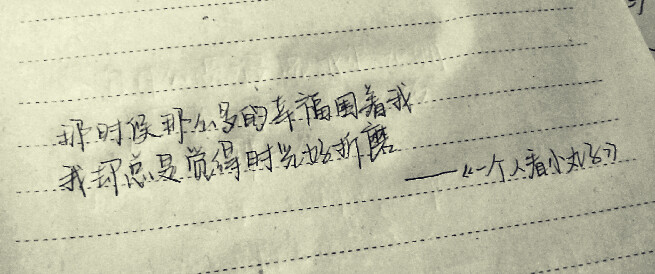 那时候那么多的幸福围着我
我却总是觉得时光好折磨
——《一个人看小丸子》